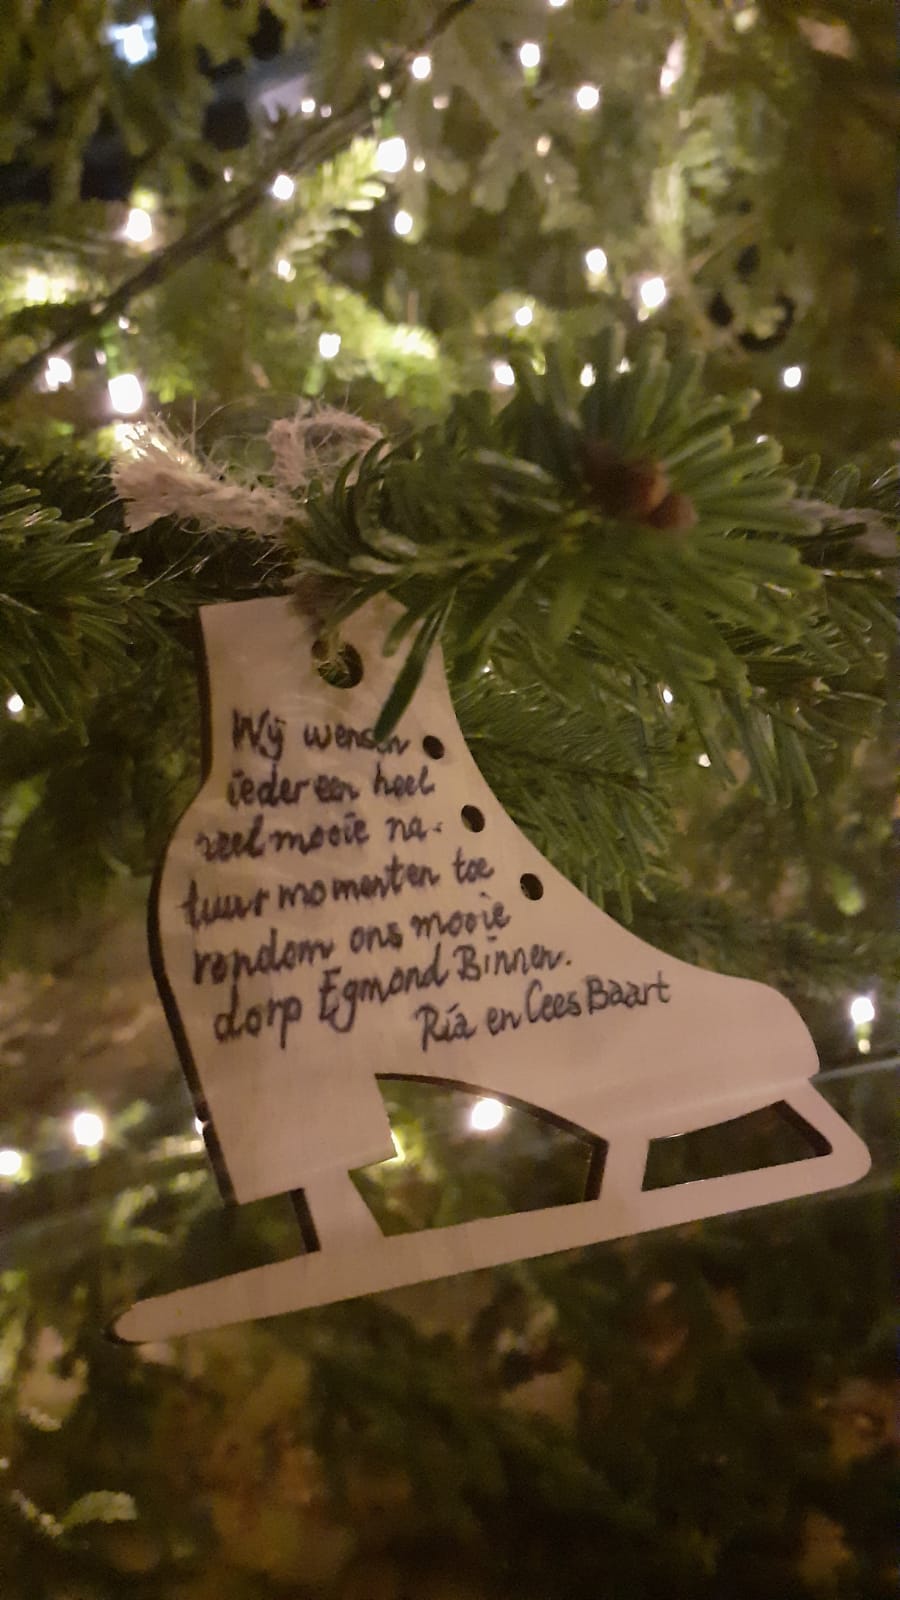 Wij wensen
iedereen heel
veel mooie na-
tuurmomenten toe
rondom ons mooie
dorp Egmond Binnen.
Ria en Cees Baart